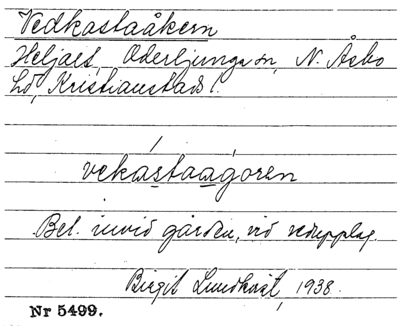 Vedkastaåkern
Heljalt, Oderljunga sn, N. Åsbo
hd, Kristianstads l.
vekástaagóren
Bel. invid gården, vid vedupplag.
Birgit Lundkvist, 1938.
Nr 5499.